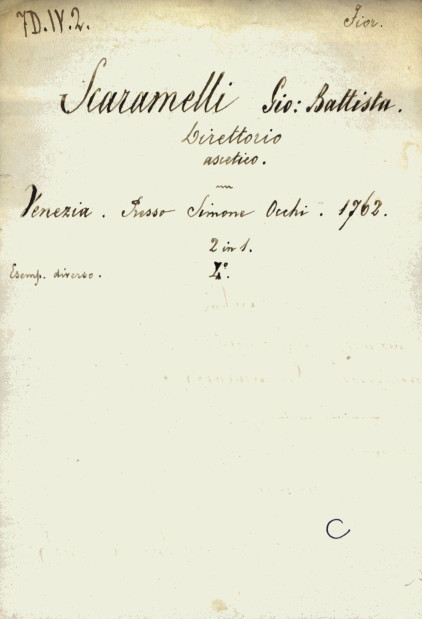 7D.IV.2. Fior.
Scaramelli Gio: Battista.
Direttorio
ascetico.
Venezia. Presso Simone Occhi. 1762.
2 in 1.
Esemp. diverso. 4°.
C